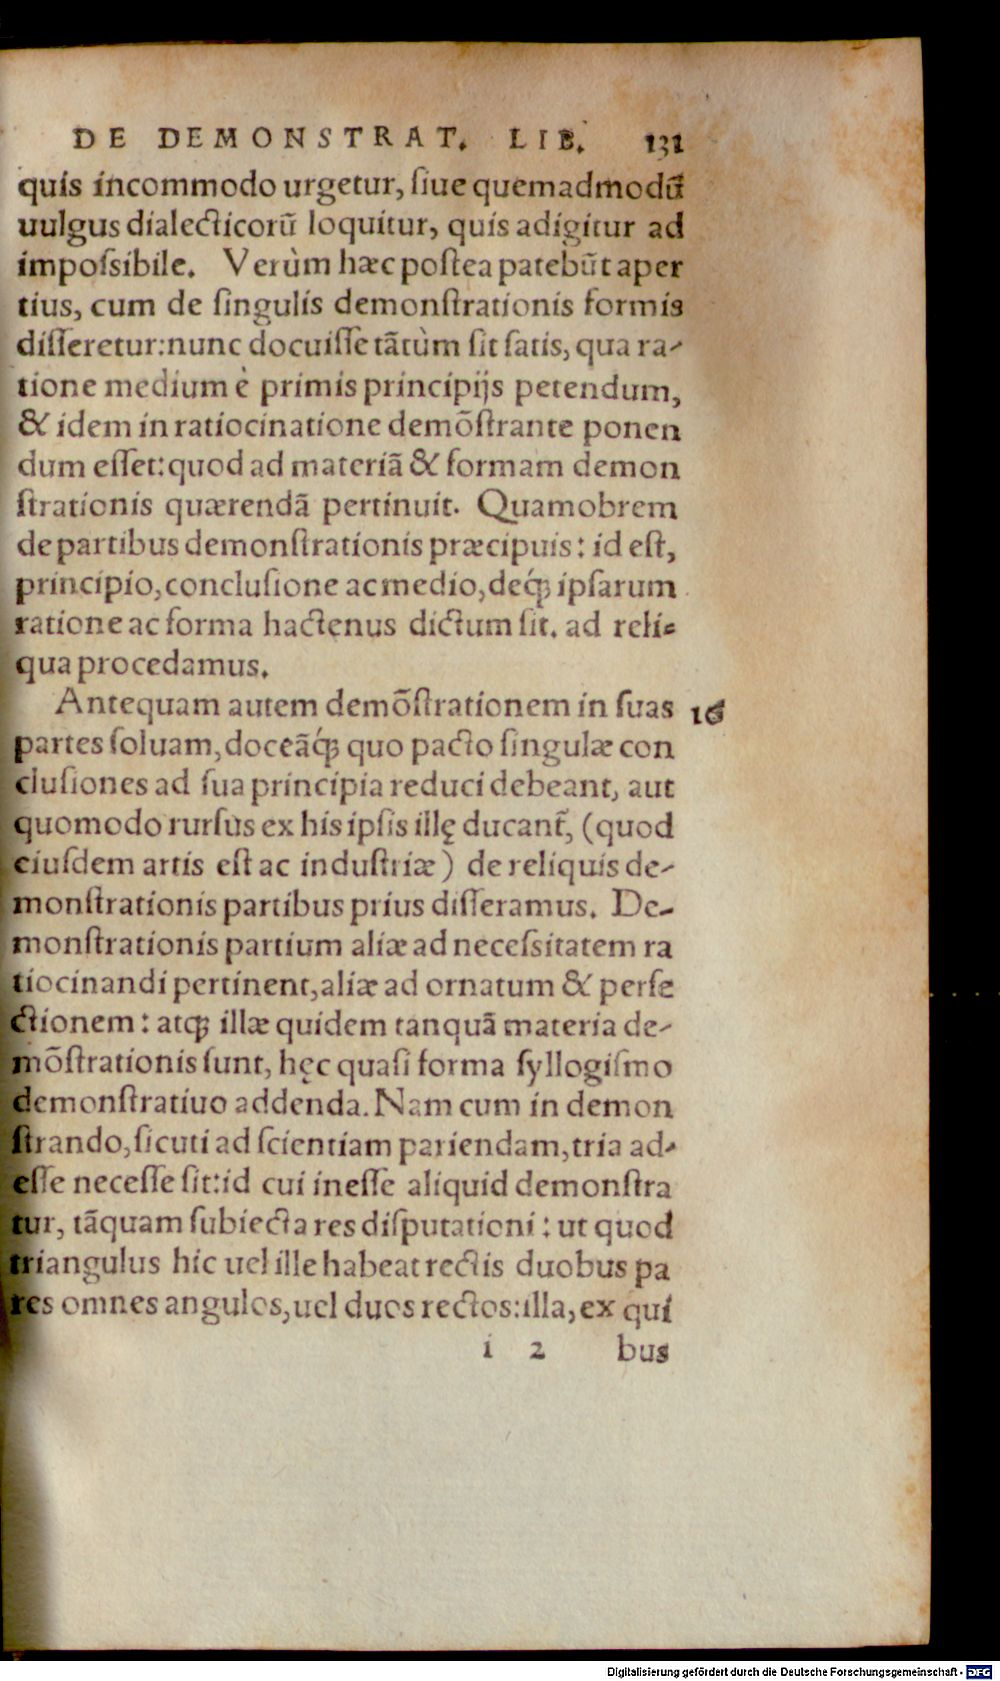 DE DEMONSTRAT. LIB. 131
quis incommodo urgetur, ſiue quemadmodũ
uulgus dialecticorũ loquitur, quis adigitur ad
impoſsibile. Verùm hæc poſtea patebũt aper
tius, cum de ſingulis demonſtrationis formis
diſſeretur: nunc docuiſſe tãtùm ſit ſatis, qua ra-
tione medium è primis principijs petendum,
& idem in ratiocinatione demõſtrante ponen
dum eſſet: quod ad materiã & formam demon
ſtrationis quærendã pertinuit. Quamobrem
de partibus demonſtrationis præcipuis: id eſt,
principio, concluſione ac medio, deq́ꝫ ipſarum
ratione ac forma hactenus dictum ſit. ad reli-
qua procedamus.
Antequam autem demõſtrationem in ſuas 16
partes ſoluam, doceãq́ꝫ quo pacto ſingulæ con
cluſiones ad ſua principia reduci debeant, aut
quomodo rurſus ex his ipſis illę ducant̃, (quod
eiuſdem artis eſt ac induſtriæ) de reliquis de-
monſtrationis partibus prius diſſeramus. De-
monſtrationis partium aliæ ad neceſsitatem ra
tiocinandi pertinent, aliæ ad ornatum & perfe
ctionem: atqꝫ illæ quidem tanquã materia de-
mõſtrationis ſunt, hęc quaſi forma ſyllogiſmo
demonſtratiuo addenda. Nam cum in demon
ſtrando, ſicuti ad ſcientiam pariendam, tria ad-
eſſe neceſſe ſit: id cui ineſſe aliquid demonſtra
tur, tãquam ſubiecta res diſputationi: ut quod
triangulus hic uel ille habeat rectis duobus pa
res omnes angulos, uel duos rectos: illa, ex qui
i 2 bus
Digitalisierung gefördert durch die Deutsche Forschungsgemeinschaft - DFG